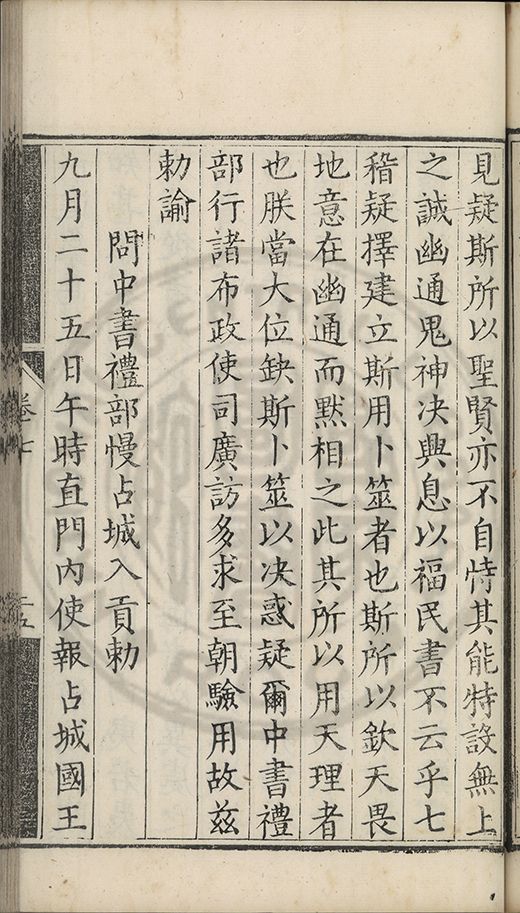 見疑斯所以聖賢亦不自恃其能特設無上
之誠幽通鬼神决興息以福民書不云乎七
稽疑擇建立斯用卜筮者也斯所以欽天畏
地意在幽通而默相之此其所以用天理者
也朕當大位缺斯卜筮以决惑疑爾中書禮
部行諸布政使司廣訪多求至朝驗用故茲
勅諭
問中書禮部慢占城入貢勅
九月二十五日午時直門內使報占城國王
卷七